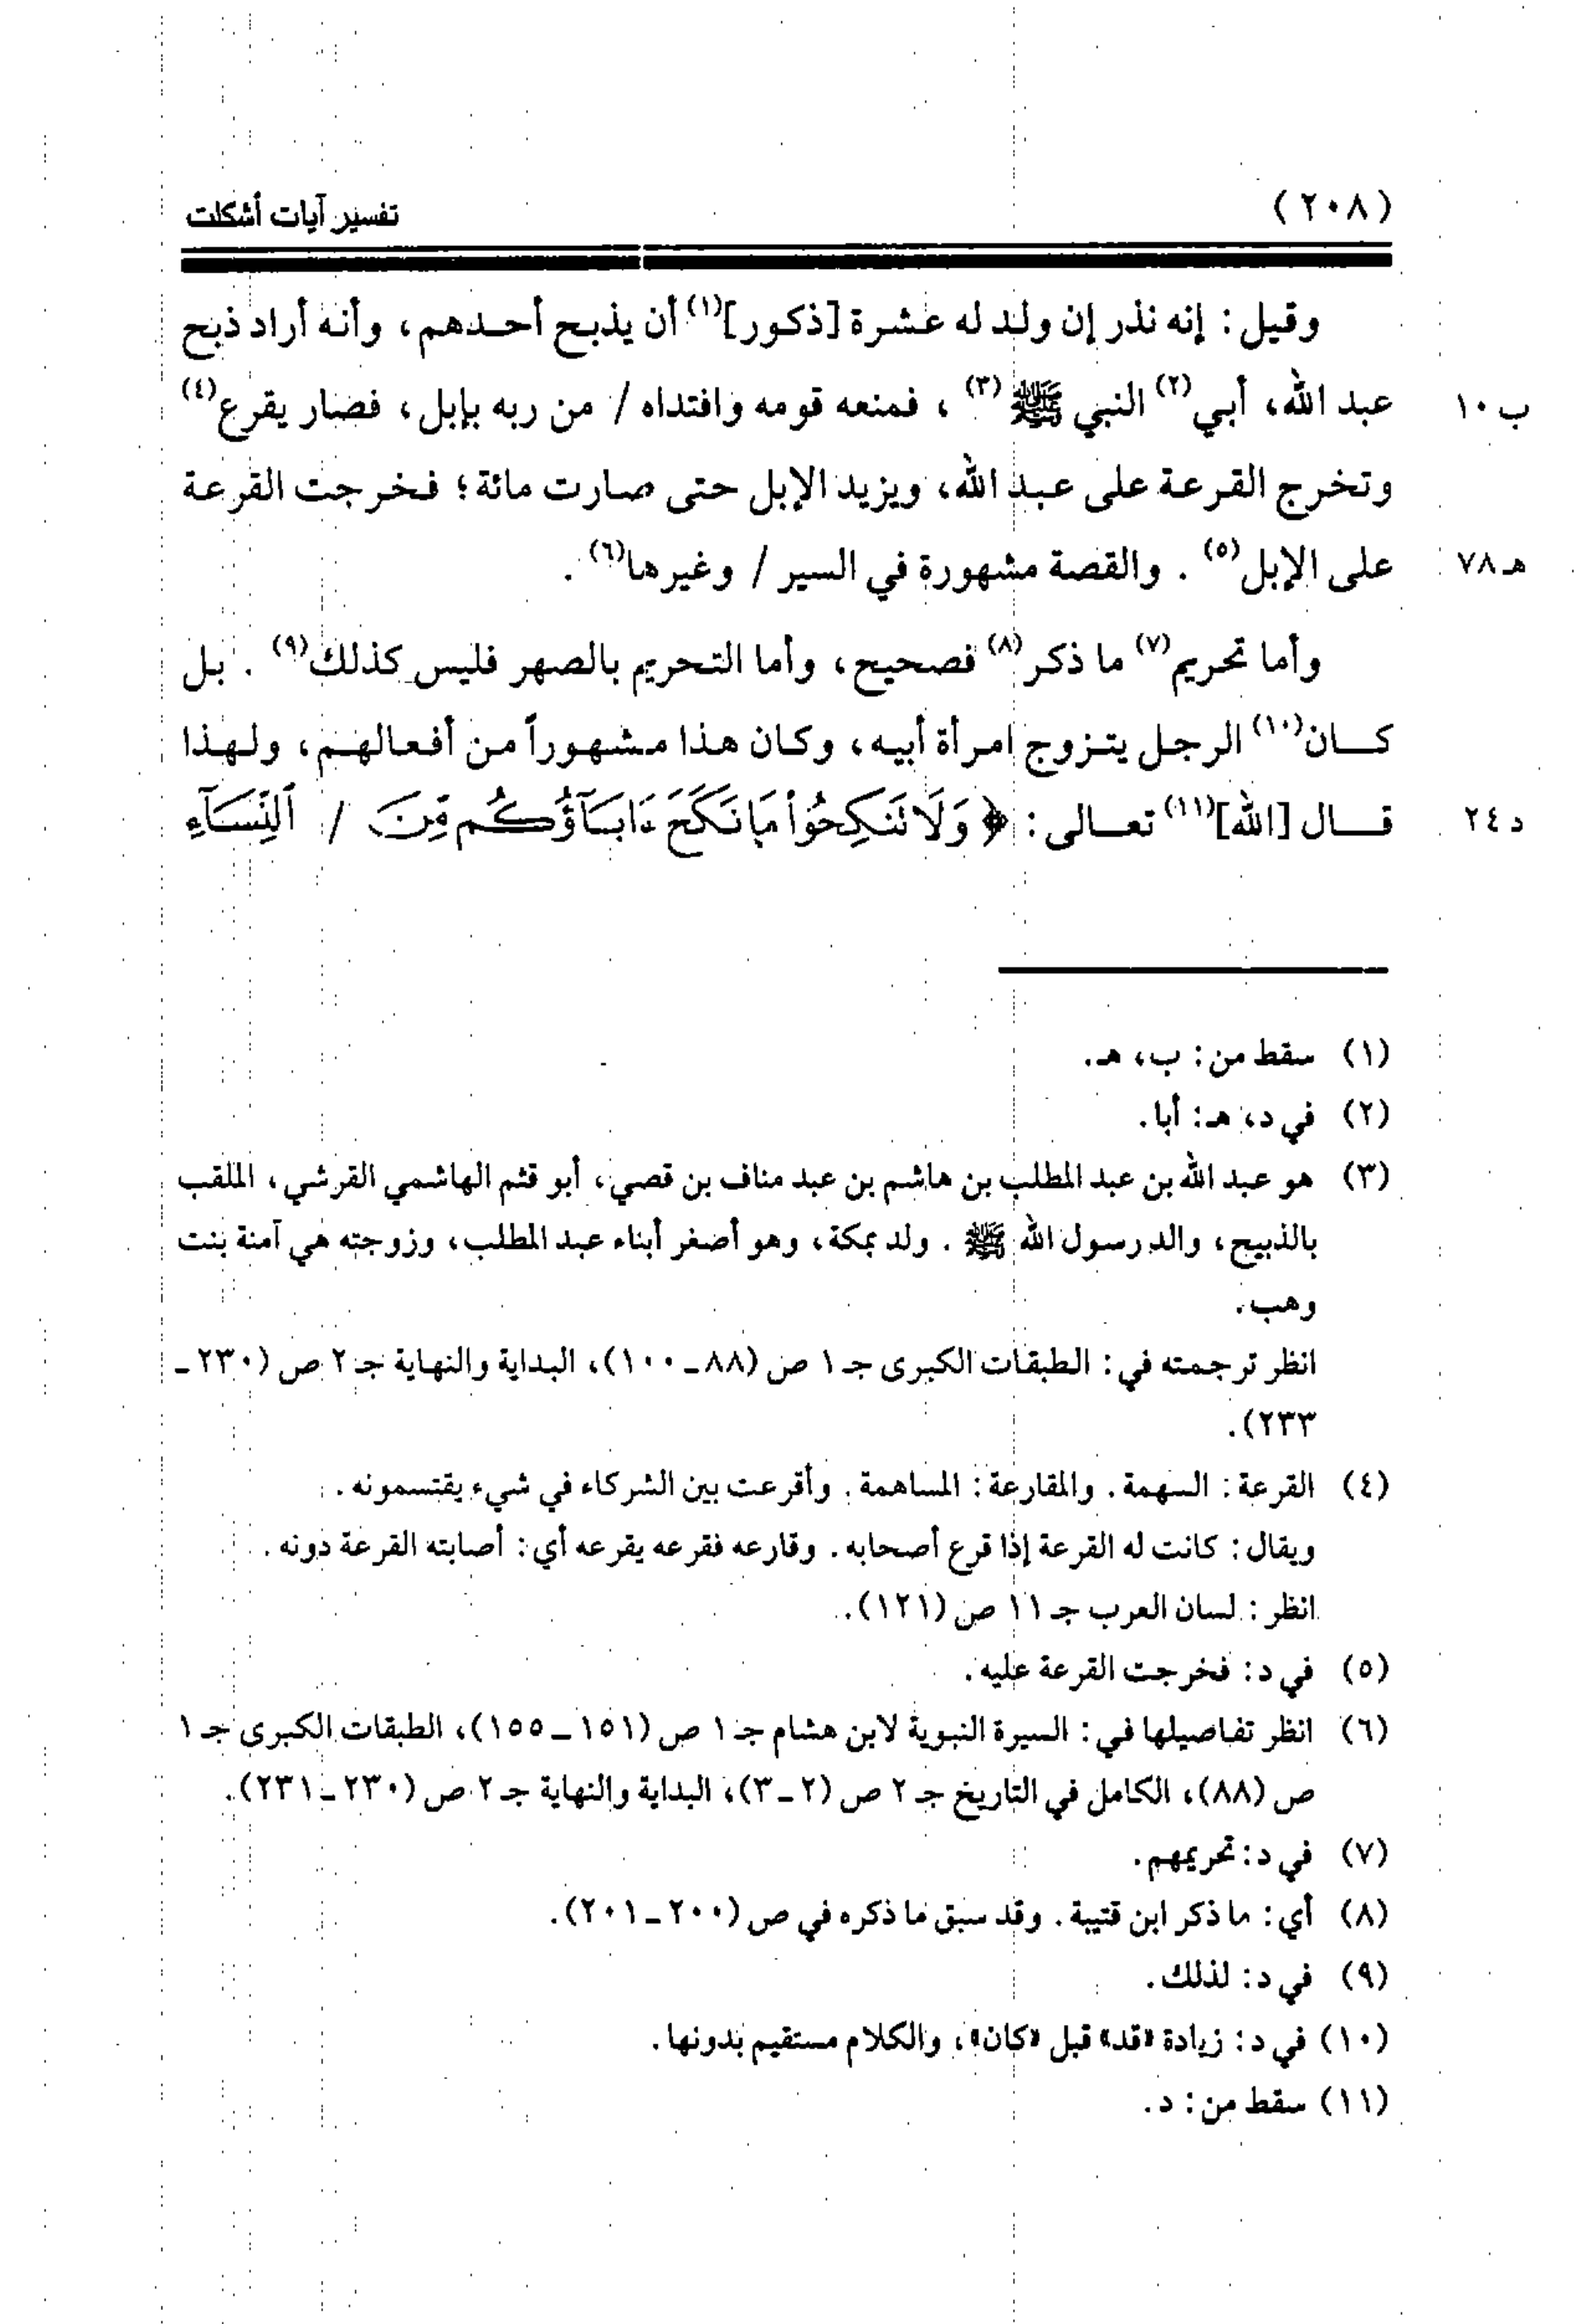 (٢٠٨) تفسير آيات أشكلت
وقيل : إنه نذر إن ولد له عشرة [ذكور](١) أن يذبح أحدهم، وأنه أراد ذبح
ب١٠ عبد الله، أبي(٢) النبي ﷺ(٣) ، فمنعه قومه وافتداه / من ربه بإبل، فصار يقرع(٤)
وتخرج القرعة على عبد الله، ويزيد الإبل حتى صارت مائة؛ فخرجت القرعة
هـ٧٨ على الإبل(٥) . والقصة مشهورة في السير / وغيرها(٦) .
وأما تحريم(٧) ما ذكر(٨) فصحيح، وأما التحريم بالصهر فليس كذلك(٩) . بل
كان(١٠) الرجل يتزوج امرأة أبيه، وكان هذا مشهوراً من أفعالهم، ولهذا
د٢٤ قال [الله](١١) تعالى : ﴿ وَلَا تَنكِحُوا۟ مَا نَكَحَ ءَابَآؤُكُم مِّنَ / ٱلنِّسَآءِ
(١) سقط من: ب، هـ.
(٢) في د، هـ: أبا.
(٣) هو عبد الله بن عبد المطلب بن هاشم بن عبد مناف بن قصي، أبو قثم الهاشمي القرشي، الملقب
بالذبيح، والد رسول الله ﷺ . ولد بمكة، وهو أصغر أبناء عبد المطلب، وزوجته هي آمنة بنت
وهب.
انظر ترجمته في: الطبقات الكبرى جـ١ ص (٨٨ـ١٠٠)، البداية والنهاية جـ٢ ص (٢٣٠ـ
٢٣٣).
(٤) القرعة: السهمة. والمقارعة: المساهمة. وأقرعت بين الشركاء في شيء يقتسمونه.
ويقال: كانت له القرعة إذا قرع أصحابه. وقارعه فقرعه يقرعه أي: أصابته القرعة دونه.
انظر: لسان العرب جـ١١ ص (١٢١).
(٥) في د: فخرجت القرعة عليه.
(٦) انظر تفاصيلها في: السيرة النبوية لابن هشام جـ١ ص (١٥١ـ١٥٥)، الطبقات الكبرى جـ١
ص (٨٨)، الكامل في التاريخ جـ٢ ص (٢ـ٣)، البداية والنهاية جـ٢ ص (٢٣٠ـ٢٣١).
(٧) في د: تحريمهم.
(٨) أي: ما ذكر ابن قتيبة. وقد سبق ما ذكره في ص (٢٠٠ـ٢٠١).
(٩) في د: لذلك.
(١٠) في د: زيادة «قد» قبل «كان»، والكلام مستقيم بدونها.
(١١) سقط من: د.